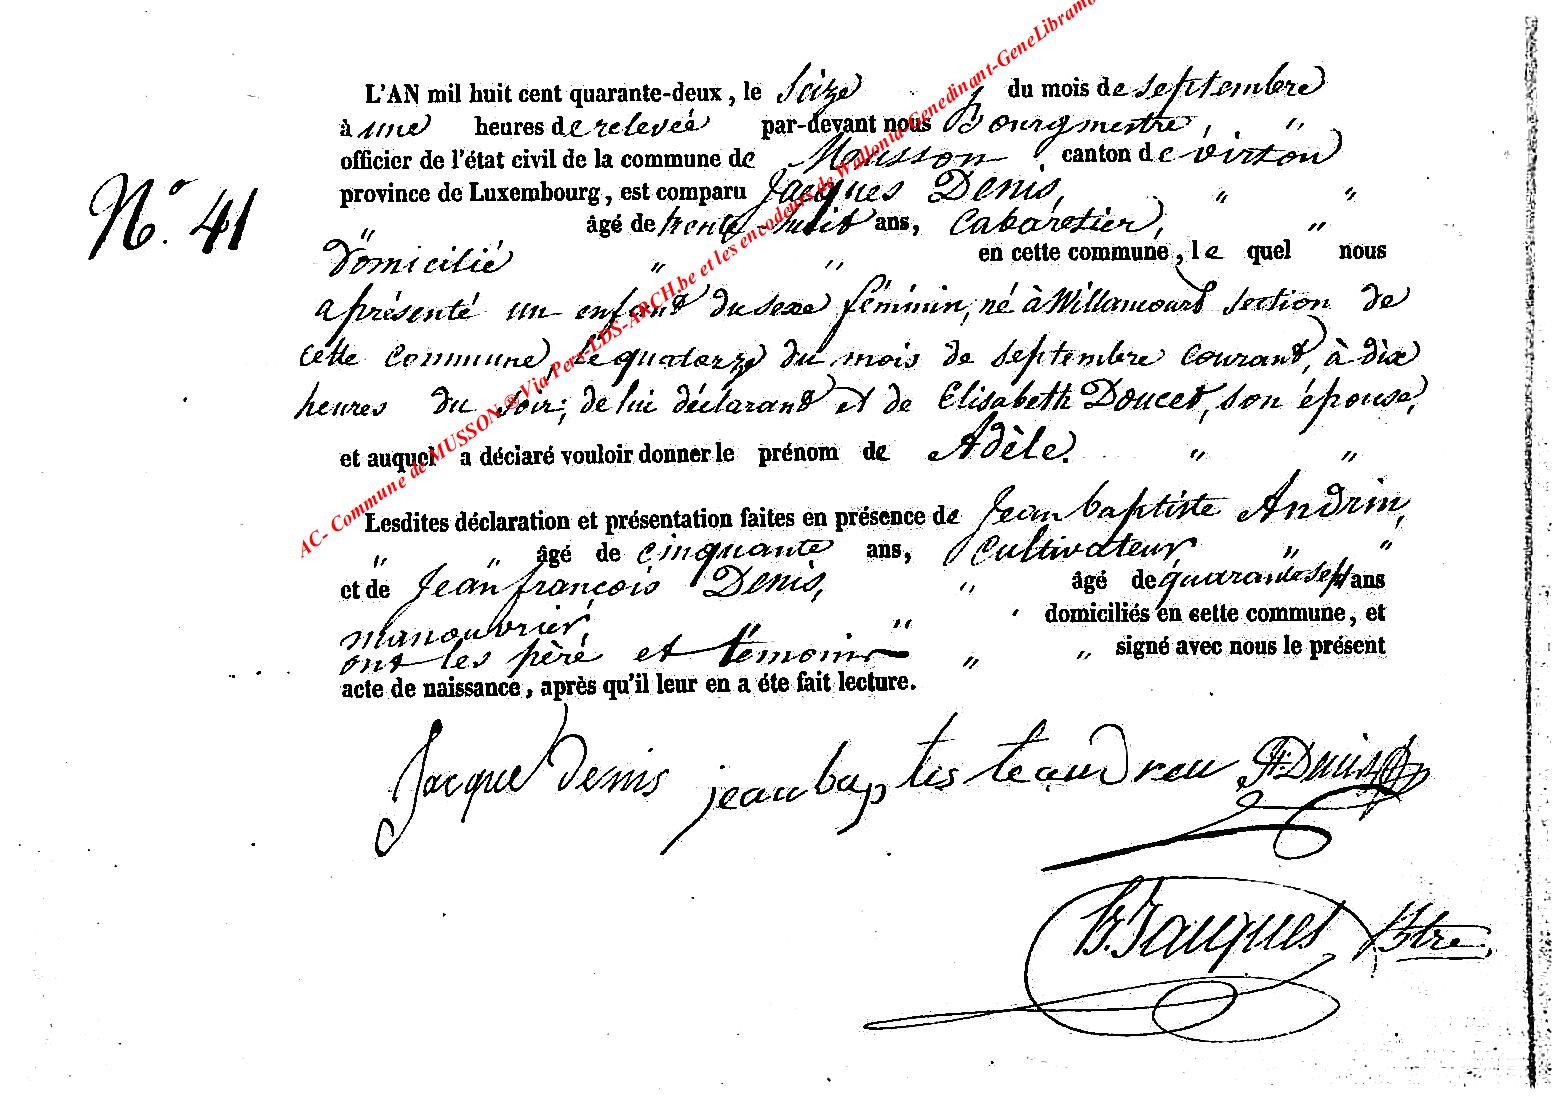 L'AN mil huit cent quarante-deux, le Seize du mois de septembre
à une heures de relevée par-devant nous Bourgmestre, "
officier de l'état civil de la commune de Musson canton de virton
province de Luxembourg, est comparu Jacques Denis, " "
N° 41
" âgé de trente-huit ans, Cabaretier, "
Domicilié " " en cette commune, le quel nous
a présenté un enfant du sexe féminin, né à Willancourt section de
cette commune, le quatorze du mois de septembre courant, à dix
heures du soir, de lui déclarant et de Elisabeth Doucet, son épouse,
et auquel a déclaré vouloir donner le prénom de Adèle. " "
Lesdites déclaration et présentation faites en présence de Jean baptiste Andrin,
" " âgé de cinquante ans, Cultivateur " "
et de Jean françois Denis, " âgé de quarante sept ans
manouvrier, " " domiciliés en cette commune, et
ont les père et témoins " " signé avec nous le présent
acte de naissance, après qu'il leur en a éte fait lecture.
Jacque Denis jean baptiste andreu Denis
Jacques Btre
AC- Commune de MUSSON ® Via Pers-LDS-ARCH.be et les encodeurs de Wallonia-Genedinant-GeneLibramo